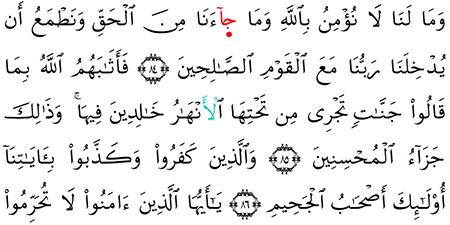 وَمَا لَنَا لَا نُؤْمِنُ بِٱللَّهِ وَمَا جَآءَنَا مِنَ ٱلْحَقِّ وَنَطْمَعُ أَن
يُدْخِلَنَا رَبُّنَا مَعَ ٱلْقَوْمِ ٱلصَّٰلِحِينَ ٨٤ فَأَثَٰبَهُمُ ٱللَّهُ بِمَا
قَالُوا۟ جَنَّٰتٍ تَجْرِى مِن تَحْتِهَا ٱلْأَنْهَٰرُ خَٰلِدِينَ فِيهَا ۚ وَذَٰلِكَ
جَزَآءُ ٱلْمُحْسِنِينَ ٨٥ وَٱلَّذِينَ كَفَرُوا۟ وَكَذَّبُوا۟ بِـَٔايَٰتِنَآ
أُو۟لَٰٓئِكَ أَصْحَٰبُ ٱلْجَحِيمِ ٨٦ يَٰٓأَيُّهَا ٱلَّذِينَ ءَامَنُوا۟ لَا تُحَرِّمُوا۟